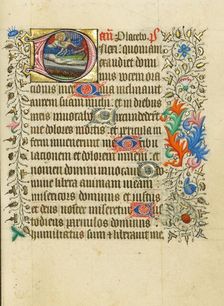 Placebo. ps
Dilexi quoniam
exaudiet domi
nus vocem orati
onis mee Quia inclinavit
aurem suam michi et in diebus
meis invocabo Circumdederunt
me dolores mortis et pericula in
ferni invenerunt me Tribu
lationem et dolorem inveni et
nomen domini invocavi O domi
ne libera animam meam
misericors dominus et iustus
et deus noster miseretur Cus
todiens parvulos dominus
humiliatus sum et liberavit me